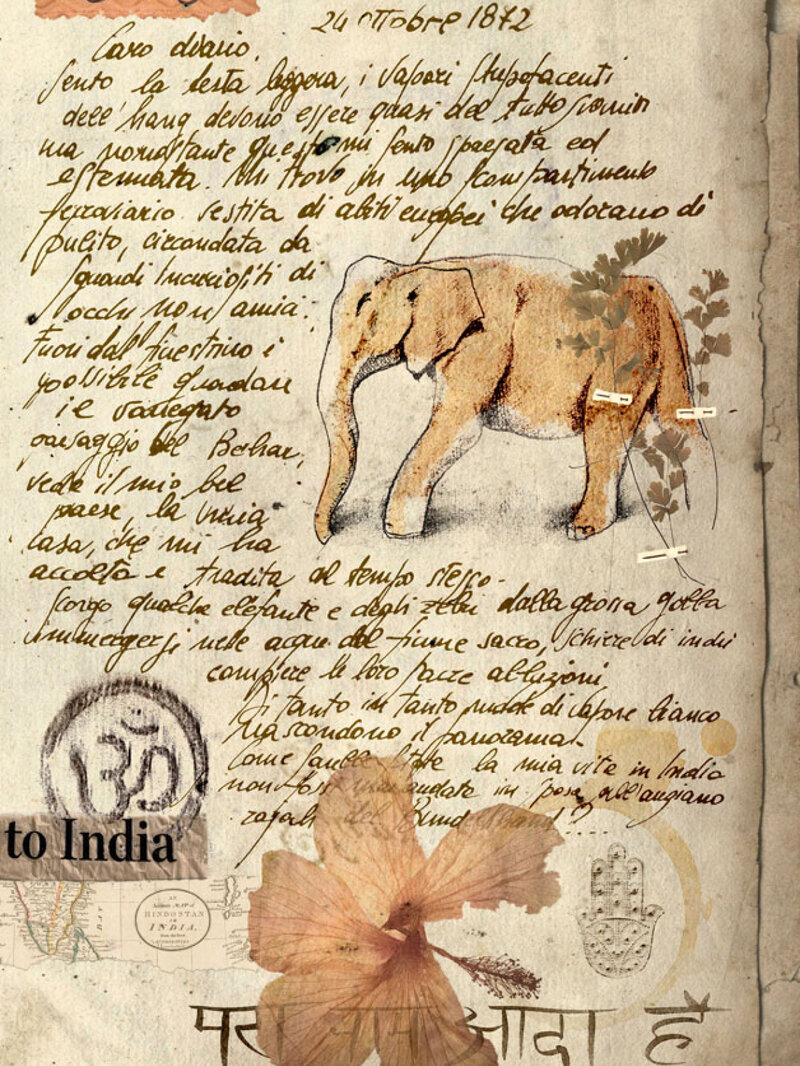 24 ottobre 1872
Caro diario,
sento la testa leggera, i vapori stupefacenti
dell'bang devono essere quasi del tutto svaniti
ma nonostante questo mi sento spaesata ed
estenuata. Mi trovo in uno scompartimento
ferroviario vestita di abiti europei che odorano di
pulito, circondata da
sguardi incuriositi di
occhi non amici.
Fuori dal finestrino è
possibile guardare
il variegato
paesaggio del Behar,
vedo il mio bel
paese, la mia
casa, che mi ha
accolta e tradita al tempo stesso.
Scorgo qualche elefante e degli zebù dalla grossa gobba
immergersi nelle acque del fiume sacro, schiere di indù
compiere le loro sacre abluzioni
Di tanto in tanto nuvole di vapore bianco
nascondono il panorama.
Come sarebbe stata la mia vita in India
non fossi mai andata in sposa all'anziano
rajah del Bundelkhand?....
ॐ
to India
BAY
AN
Accurate MAP of
HINDOSTAN
or
INDIA,
From the Best
AUTHORITIES
आदा है